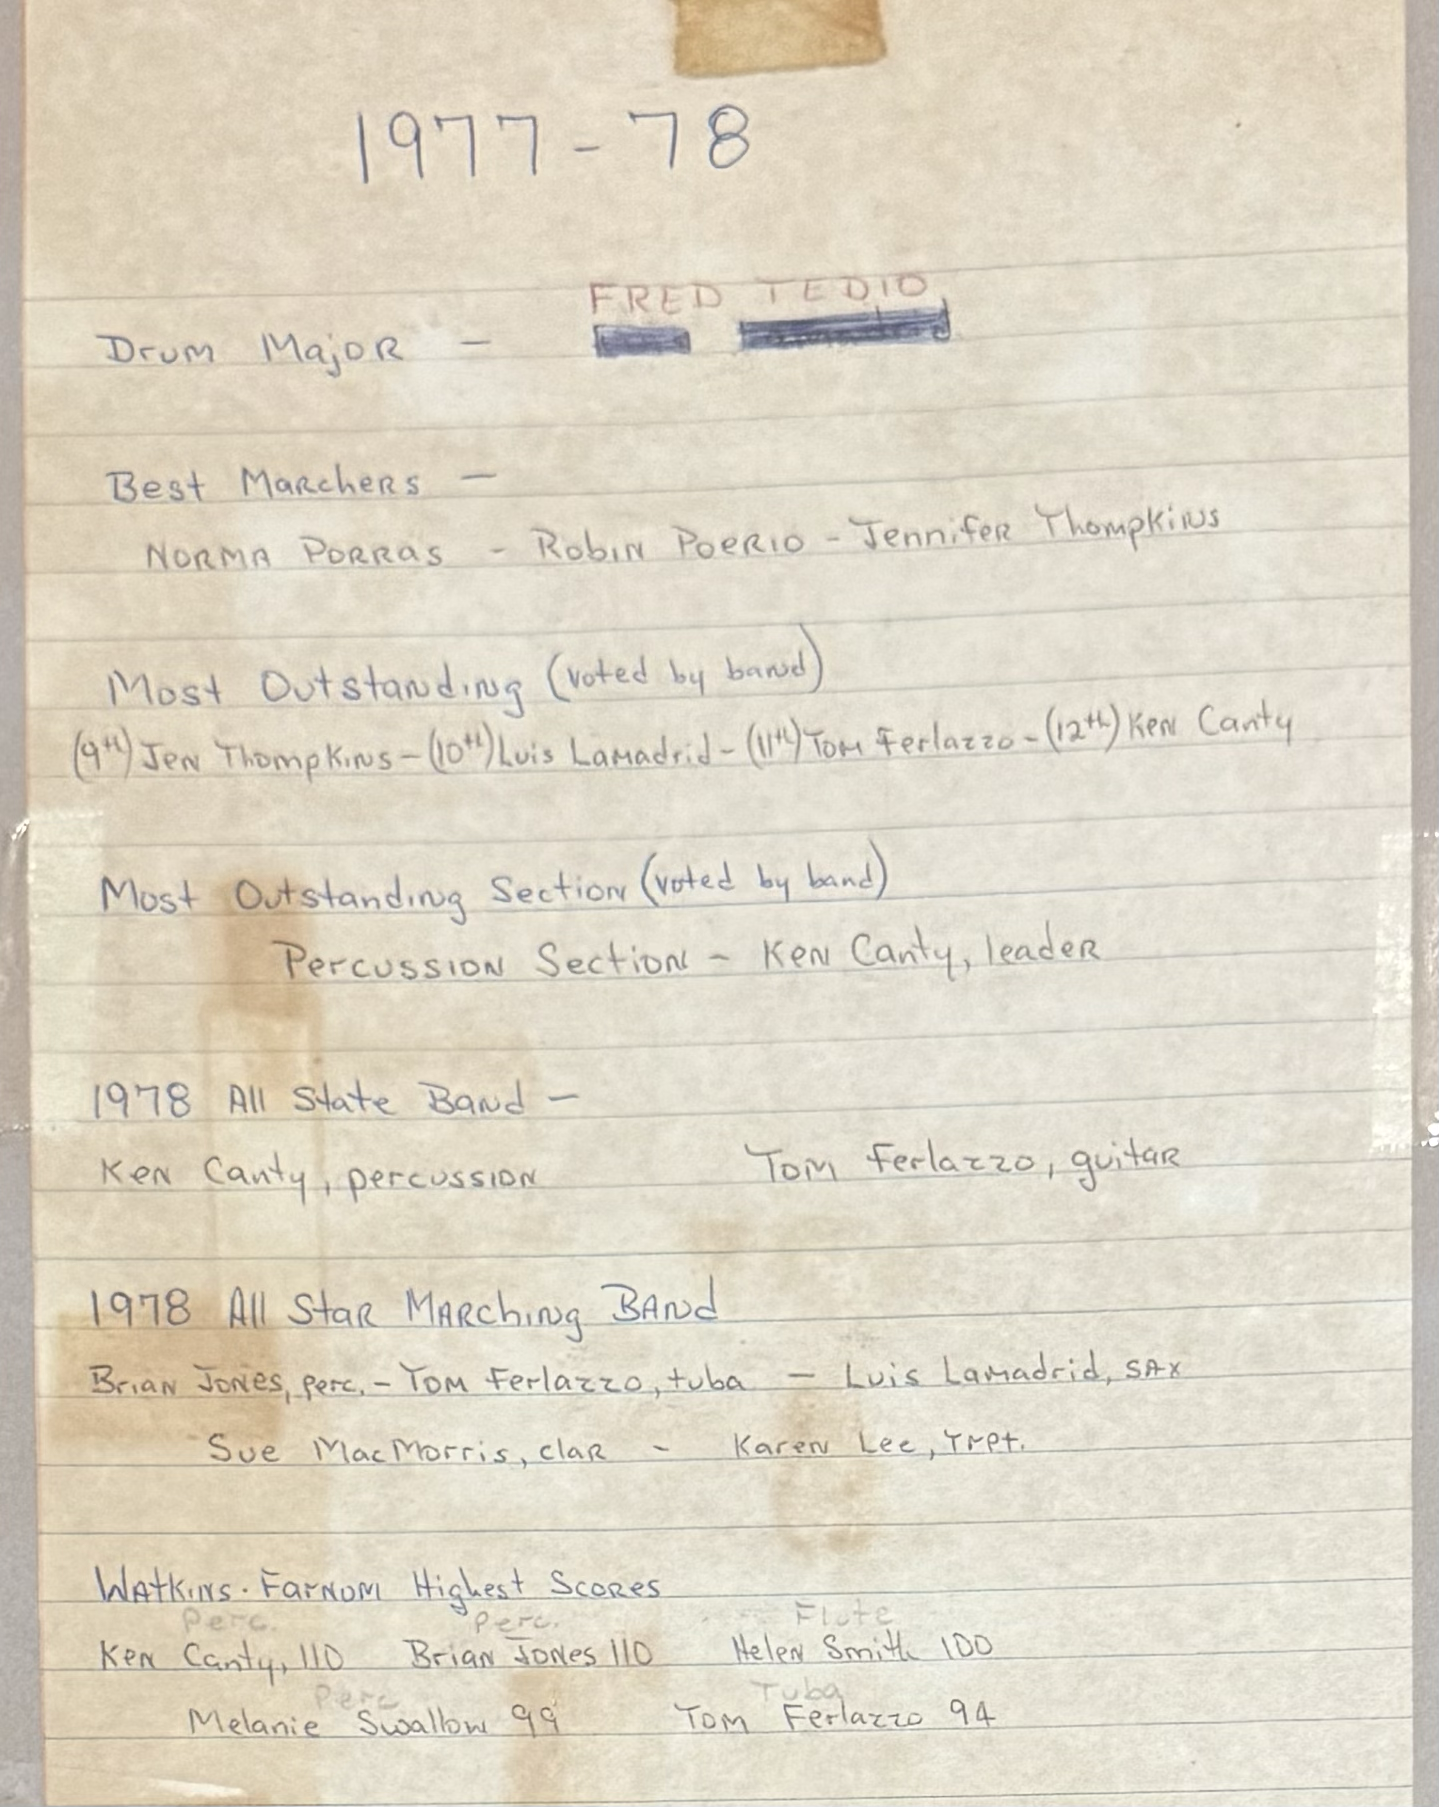 1977-78
FRED TEDIO
Drum Major -
Best Marchers -
Norma Porras - Robin Poerio - Jennifer Thompkins
Most Outstanding (voted by band)
(9th) Jen Thompkins - (10th) Luis Lamadrid - (11th) Tom Ferlazzo - (12th) Ken Canty
Most Outstanding Section (voted by band)
Percussion Section - Ken Canty, leader
1978 All State Band -
Ken Canty, percussion Tom Ferlazzo, guitar
1978 All Star Marching Band
Brian Jones, perc. - Tom Ferlazzo, tuba - Luis Lamadrid, sax
Sue MacMorris, clar - Karen Lee, Trpt.
Watkins. Farnum Highest Scores
Perc. Perc. Flute
Ken Canty, 110 Brian Jones 110 Helen Smith 100
Perc Tuba
Melanie Swallow 99 Tom Ferlazzo 94